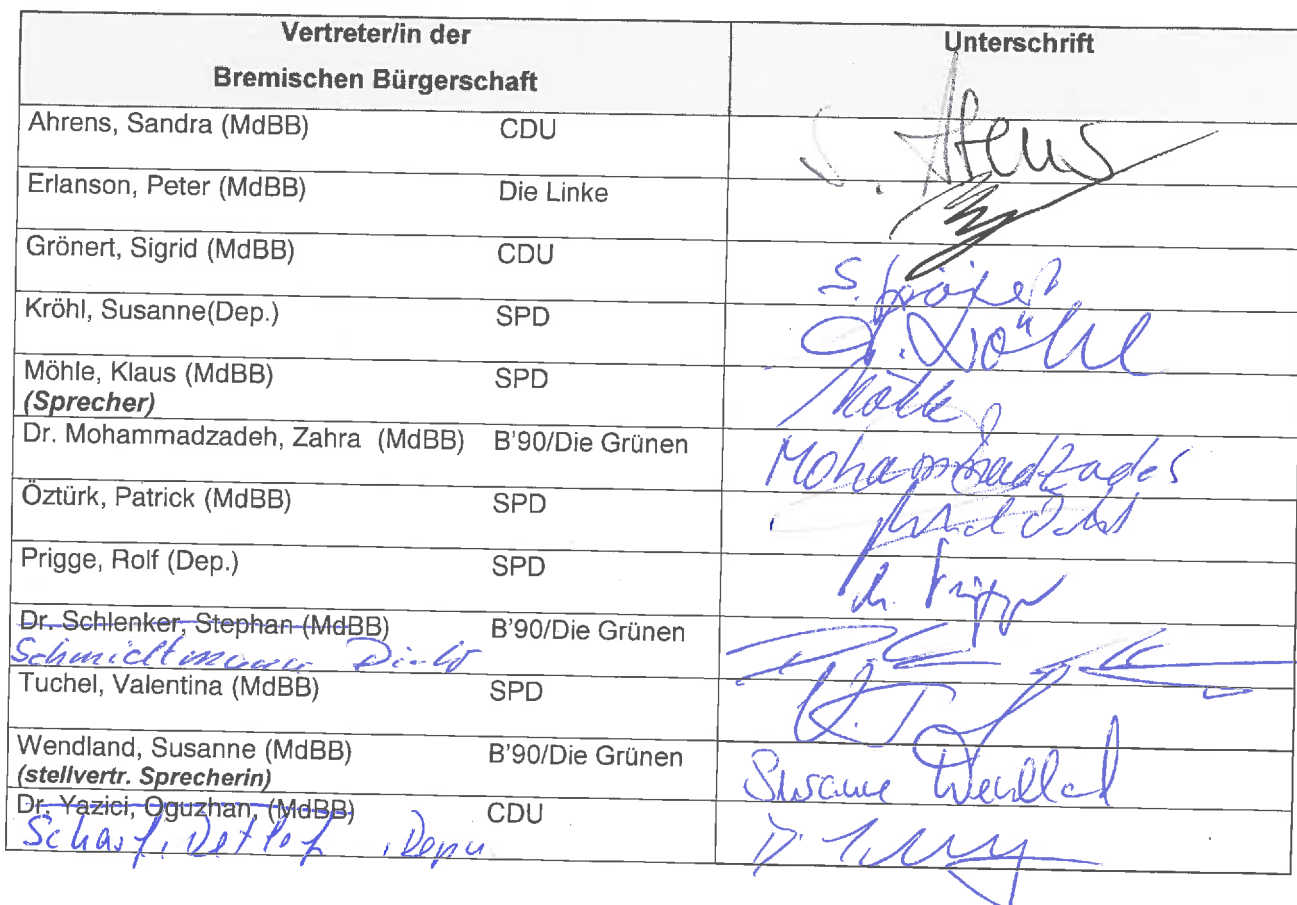 Vertreter/in der
Bremischen Bürgerschaft
Unterschrift
Ahrens, Sandra (MdBB) CDU S. Ahrens
Erlanson, Peter (MdBB) Die Linke
Grönert, Sigrid (MdBB) CDU S. Grönert
Kröhl, Susanne(Dep.) SPD S. Kröhl
Möhle, Klaus (MdBB) SPD Möhle
(Sprecher)
Dr. Mohammadzadeh, Zahra (MdBB) B'90/Die Grünen Mohammadzadeh
Öztürk, Patrick (MdBB) SPD
Prigge, Rolf (Dep.) SPD R. Prigge
Dr. Schlenker, Stephan (MdBB) B'90/Die Grünen
Schmidtmann
Tuchel, Valentina (MdBB) SPD
Wendland, Susanne (MdBB) B'90/Die Grünen Susanne Wendland
(stellvertr. Sprecherin)
Dr. Yazici, Oguzhan, (MdBB) CDU
Scharf, Detlef, Depu